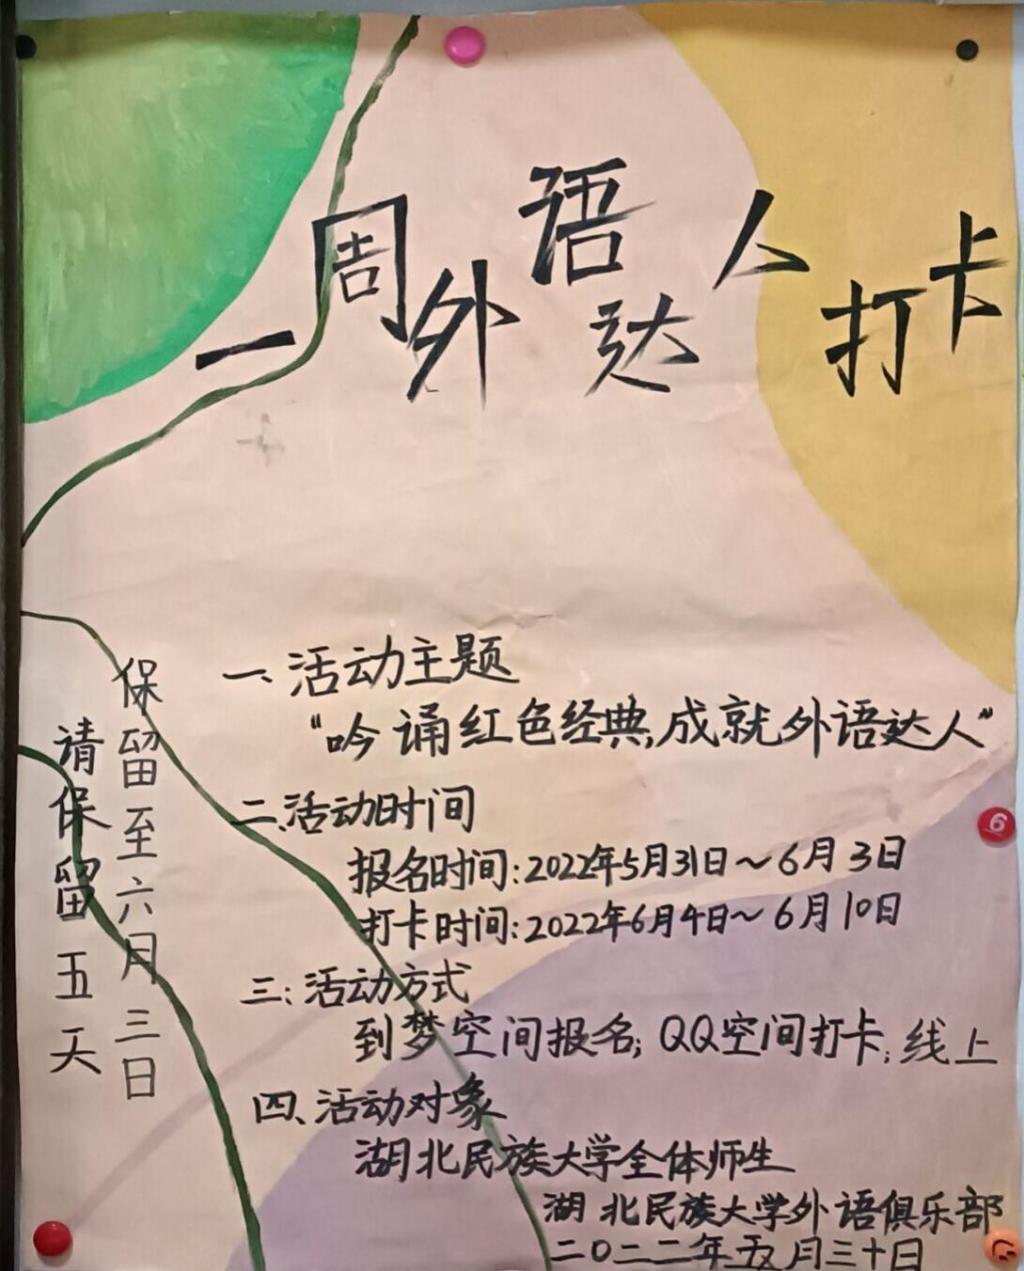 一周外语达人打卡
一、活动主题
“吟诵红色经典,成就外语达人”
二、活动时间
报名时间:2022年5月31日~6月3日
打卡时间:2022年6月4日~6月10日
三:活动方式
到梦空间报名;QQ空间打卡;线上
四、活动对象
湖北民族大学全体师生
湖北民族大学外语俱乐部
二〇二二年五月三十日
保留至六月三日
请保留五天
6